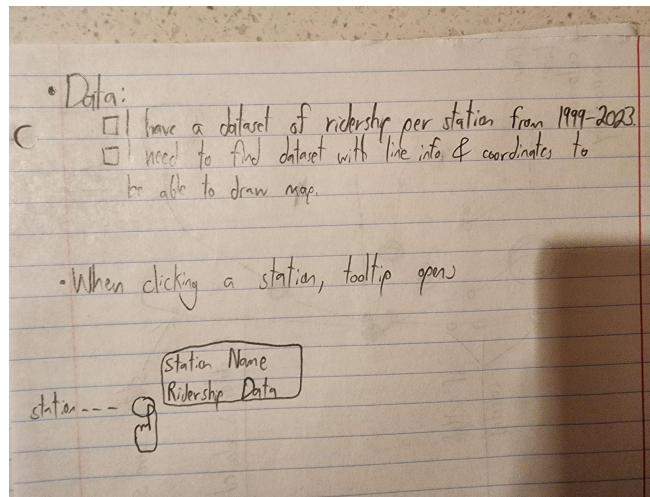 • Data:
☐ I have a dataset of ridership per station from 1999-2023.
☐ I need to find dataset with line info & coordinates to
be able to draw map.
• When clicking a station, tooltip opens
Station Name
Ridership Data
station ---